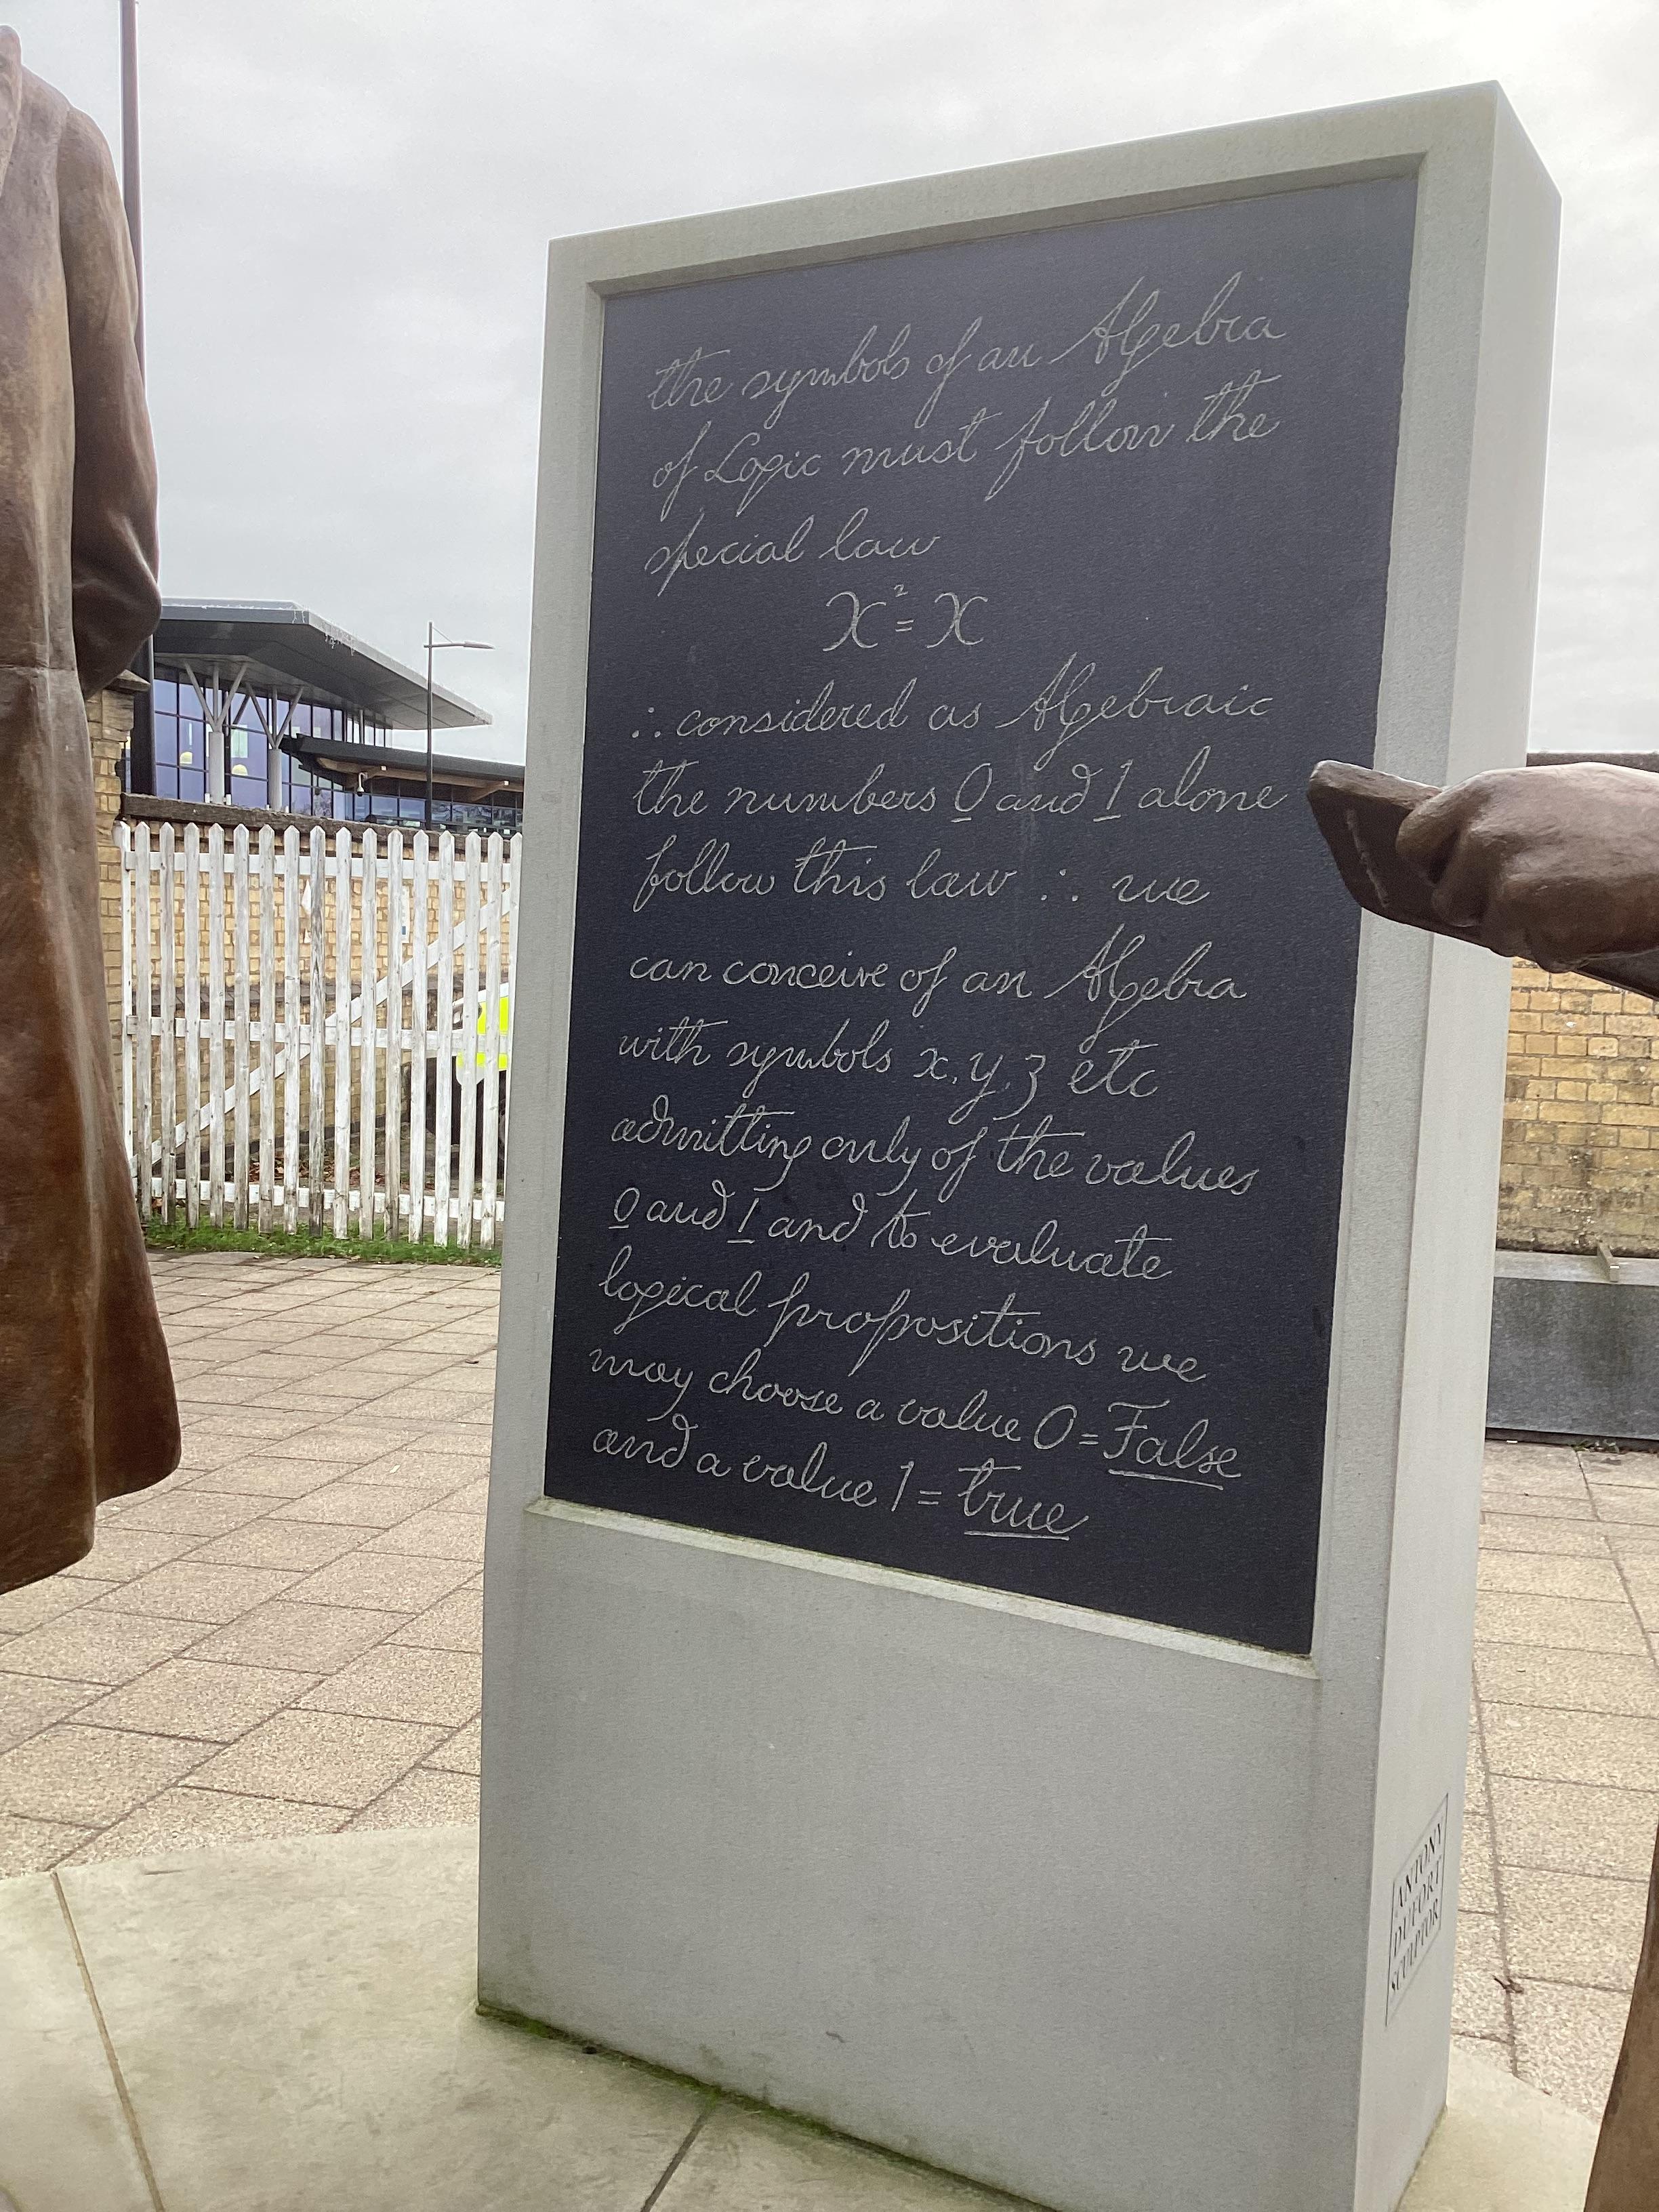 the symbols of an Algebra
of Logic must follow the
special law
x² = x
∴ considered as Algebraic
the numbers 0 and 1 alone
follow this law ∴ we
can conceive of an Algebra
with symbols x, y, z etc
admitting only of the values
0 and 1 and to evaluate
logical propositions we
may choose a value 0 = False
and a value 1 = true
ANTONY
DUFORT
SCULPTOR